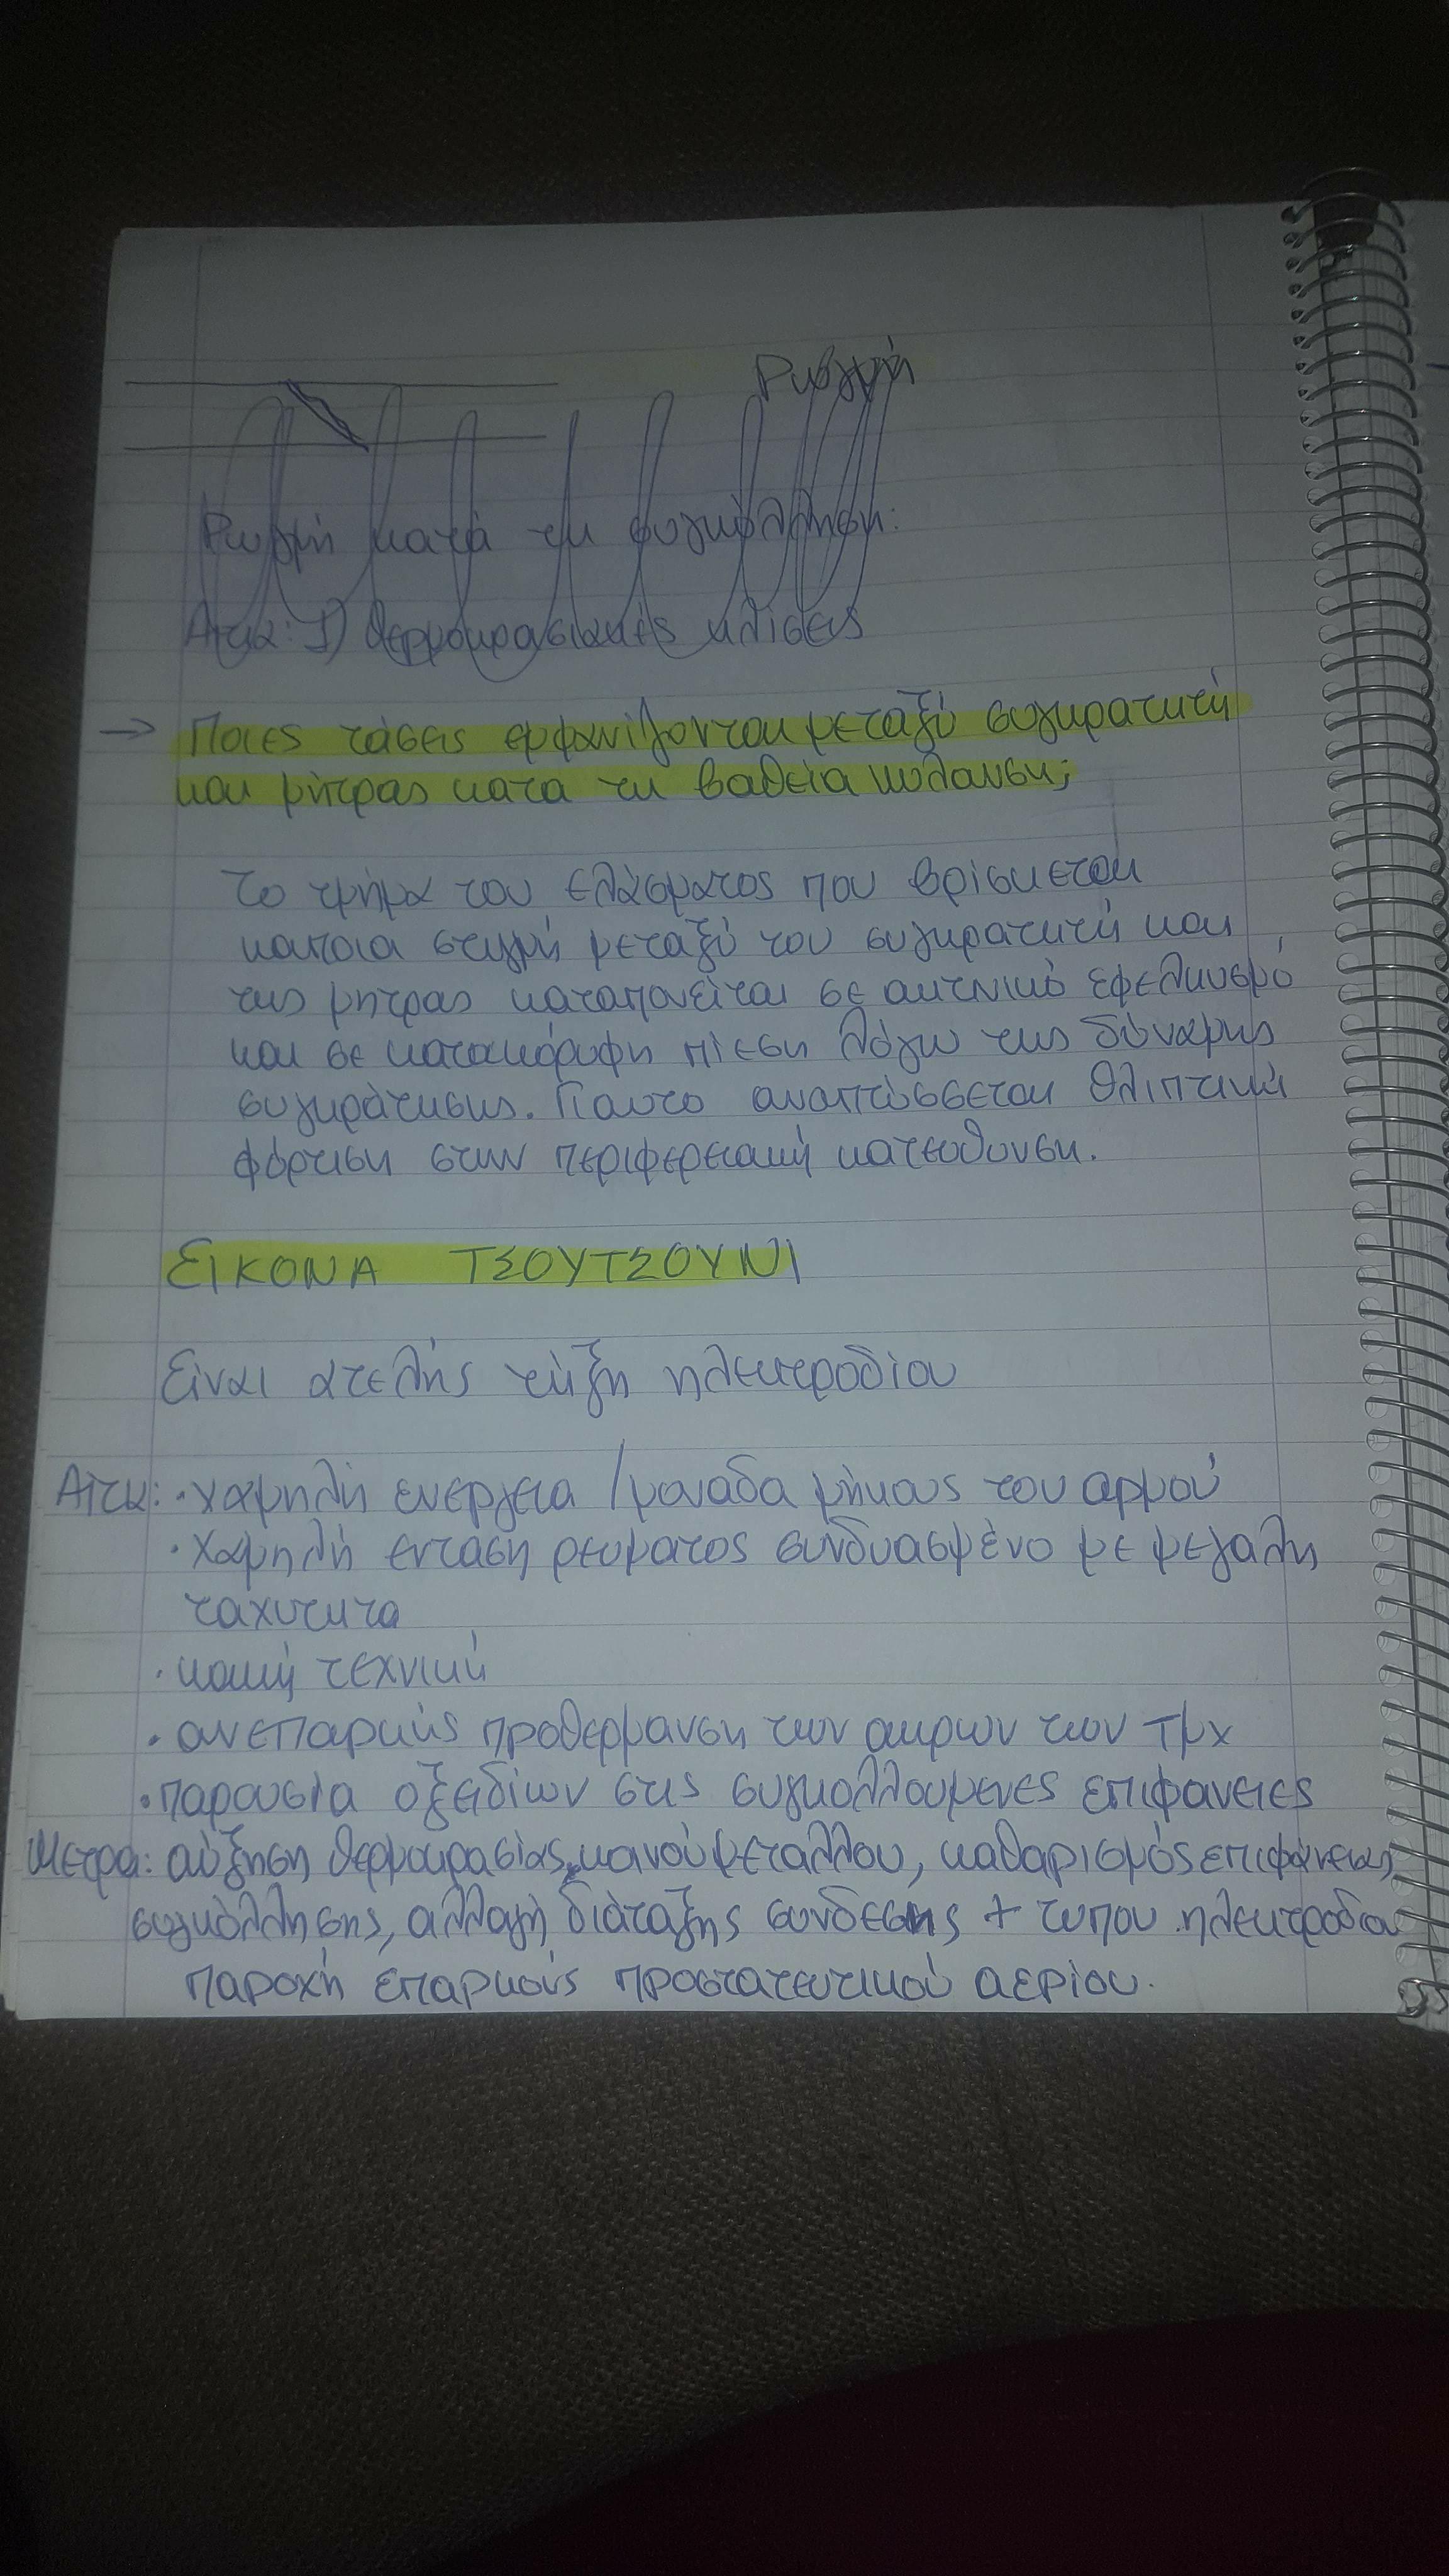 Ρωγμή
Ρωγμή κατά τη συγκόλληση:
Αιτια: 1) θερμοκρασιακές κλίσεις
→ Ποιες τάσεις εμφανίζονται μεταξύ συγκρατητή
και μήτρας κατα τη βαθεία κοίλανση;
Το τμήμα του ελάσματος που βρίσκεται
καποια στιγμή μεταξύ του συγκρατητή και
της μητρας καταπονείται σε ακτινικό εφελκυσμό
και σε κατακόρυφη πίεση λόγω της δύναμης
συγκράτησης. Γιαυτο αναπτύσσεται θλιπτική
φόρτιση στην περιφερειακή κατευθυνση.
ΕΙΚΟΝΑ ΤΣΟΥΤΣΟΥΝΙ
Είναι ατελής τήξη ηλεκτροδίου
Αιτια: · χαμηλή ενεργεια / μοναδα μήκους του αρμού
· Χαμηλή ενταση ρευματος συνδυασμένο με μεγαλη
ταχυτητα
· κακή τεχνική
· ανεπαρκής προθερμανση των ακρων των τμχ
· παρουσια οξειδίων στις συγκολλουμενες επιφανειες
Μετρα: αύξηση θερμοκρασίας, κανού μεταλλου, καθαρισμός επιφάνειας
συγκόλλησης, αλλαγή διάταξης συνδεσης + τυπου ηλεκτροδιου
παροχή επαρκούς προστατευτικού αερίου.